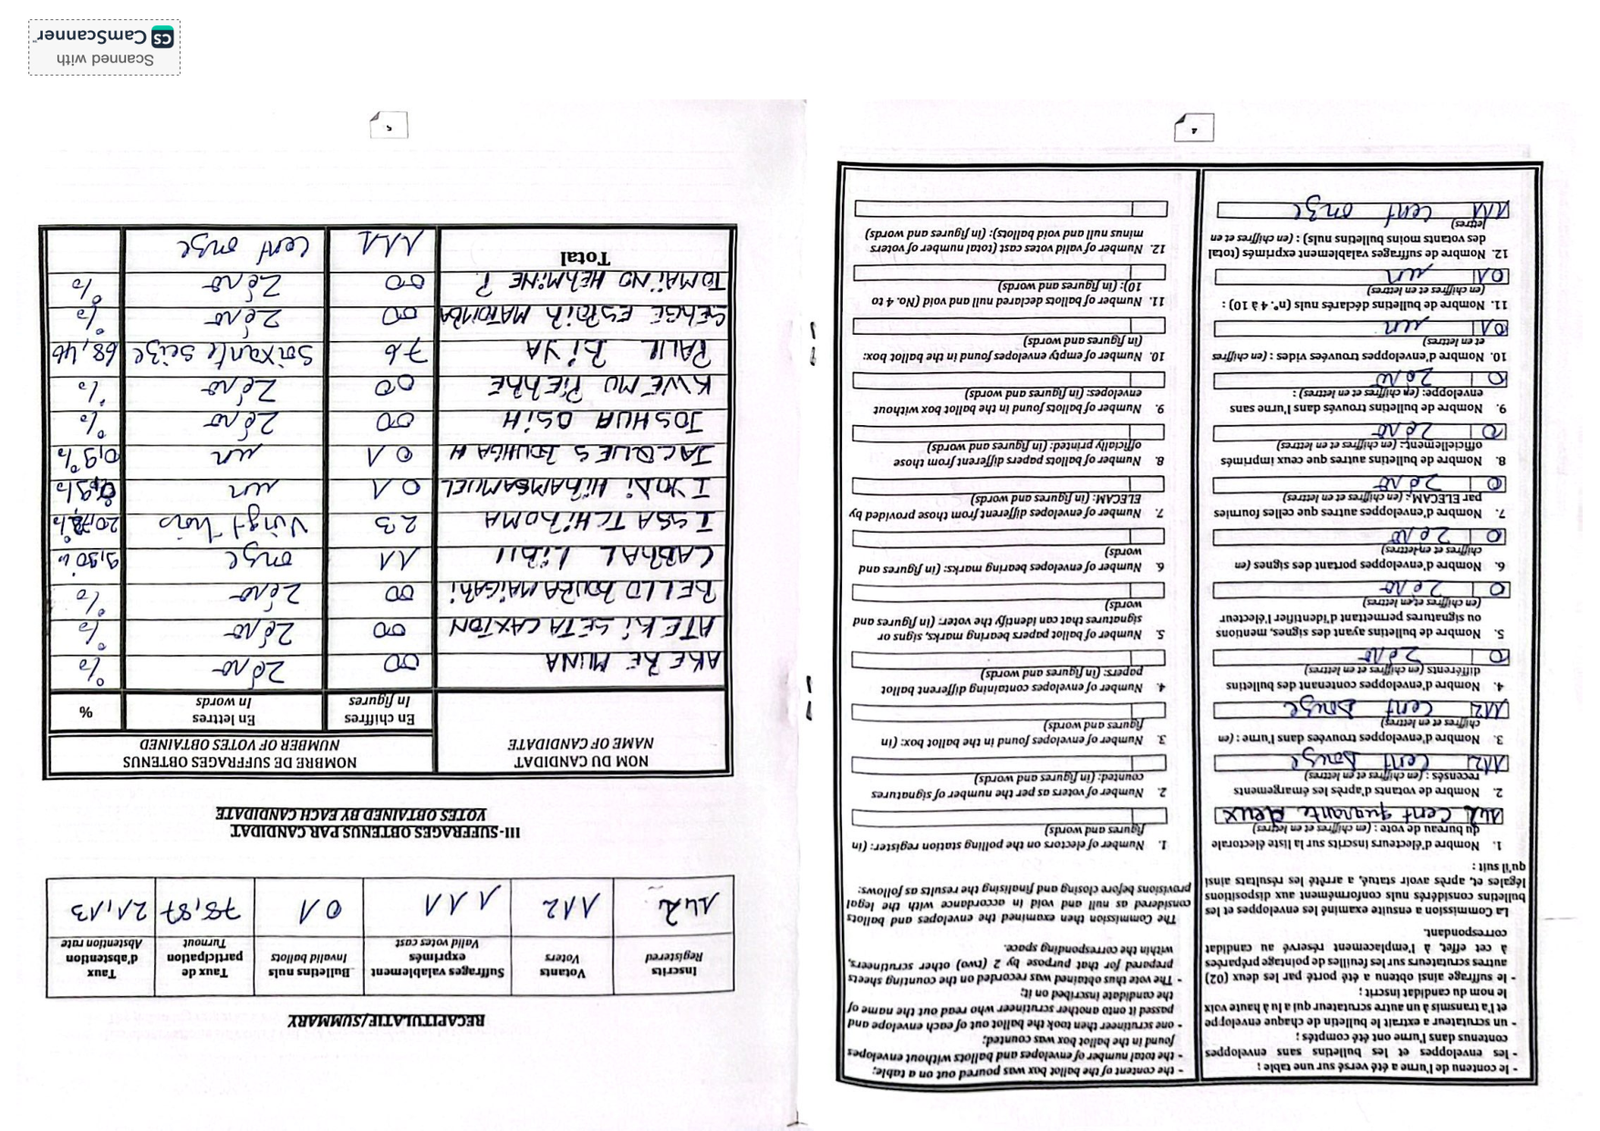 - le contenu de l'urne a été versé sur une table ;
- les enveloppes et les bulletins sans enveloppes
contenus dans l'urne ont été comptés ;
- un scrutateur a extrait le bulletin de chaque enveloppe
et l'a transmis à un autre scrutateur qui a lu à haute voix
le nom du candidat inscrit ;
- le suffrage ainsi obtenu a été porté par les deux (02)
autres scrutateurs sur les feuilles de pointage préparées
à cet effet, à l'emplacement réservé au candidat
correspondant.
La Commission a ensuite examiné les enveloppes et les
bulletins considérés nuls conformément aux dispositions
légales et, après avoir statué, a arrêté les résultats ainsi
qu'il suit :
1. Nombre d'électeurs inscrits sur la liste électorale
du bureau de vote : (en chiffres et en lettres)
142 cent quarante deux
2. Nombre de votants d'après les émargements
recensés : (en chiffres et en lettres)
112 cent douze
3. Nombre d'enveloppes trouvées dans l'urne : (en
chiffres et en lettres)
112 cent douze
4. Nombre d'enveloppes contenant des bulletins
différents (en chiffres et en lettres)
0 zéro
5. Nombre de bulletins ayant des signes, mentions
ou signatures permettant d'identifier l'électeur
(en chiffres et en lettres)
0 zéro
6. Nombre d'enveloppes portant des signes (en
chiffres et en lettres)
0 zéro
7. Nombre d'enveloppes autres que celles fournies
par ELECAM : (en chiffres et en lettres)
0 zéro
8. Nombre de bulletins autres que ceux imprimés
officiellement : (en chiffres et en lettres)
0 zéro
9. Nombre de bulletins trouvés dans l'urne sans
enveloppe: (en chiffres et en lettres) :
0 zéro
10. Nombre d'enveloppes trouvées vides : (en chiffres
et en lettres)
01 un
11. Nombre de bulletins déclarés nuls (n°. 4 à 10) :
(en chiffres et en lettres)
01 un
12. Nombre de suffrages valablement exprimés (total
des votants moins bulletins nuls) : (en chiffres et en
lettres)
111 cent onze
- the content of the ballot box was poured out on a table;
- the total number of envelopes and ballots without envelopes
found in the ballot box was counted;
- one scrutineer then took the ballot out of each envelope and
passed it onto another scrutineer who read out the name of
the candidate inscribed on it;
- The vote thus obtained was recorded on the counting sheets
prepared for that purpose by 2 (two) other scrutineers,
within the corresponding space.
The Commission then examined the envelopes and ballots
considered as null and void in accordance with the legal
provisions before closing and finalising the results as follows:
1. Number of electors on the polling station register: (in
figures and words)
2. Number of voters as per the number of signatures
counted: (in figures and words)
3. Number of envelopes found in the ballot box: (in
figures and words)
4. Number of envelopes containing different ballot
papers: (in figures and words)
5. Number of ballot papers bearing marks, signs or
signatures that can identify the voter: (in figures and
words)
6. Number of envelopes bearing marks: (in figures and
words)
7. Number of envelopes different from those provided by
ELECAM: (in figures and words)
8. Number of ballots papers different from those
officially printed: (in figures and words)
9. Number of ballots found in the ballot box without
envelopes: (in figures and words)
10. Number of empty envelopes found in the ballot box:
(in figures and words)
11. Number of ballots declared null and void (No. 4 to
10): (in figures and words)
12. Number of valid votes cast (total number of voters
minus null and void ballots): (in figures and words)
4
RECAPITULATIF/SUMMARY
Inscrits Registered | Votants Voters | Suffrages valablement exprimés Valid votes cast | Bulletins nuls Invalid ballots | Taux de participation Turnout | Taux d'abstention Abstention rate
142 | 112 | 111 | 01 | 78,87 | 21,13
III- SUFFRAGES OBTENUS PAR CANDIDAT
VOTES OBTAINED BY EACH CANDIDATE
NOM DU CANDIDAT NAME OF CANDIDATE | NOMBRE DE SUFFRAGES OBTENUS NUMBER OF VOTES OBTAINED
En chiffres In figures | En lettres In words | %
AKERE MUNA | 00 | zéro | %
ATEKI SETA CAXTON | 00 | zéro | %
BELLO BOUBA MAIGARI | 00 | zéro | %
CABRAL LIBII | 11 | onze | 9,90%
ISSA TCHIROMA | 23 | vingt trois | 20,72%
IYODI HIRAM SAMUEL | 01 | un | 0,9%
JACQUES BOUHGA H | 01 | un | 0,9%
JOSHUA OSIH | 00 | zéro | %
KWEMO PIERRE | 00 | zéro | %
PAUL BIYA | 76 | Soixante seize | 68,46
SERGE ESPOIR MATOMBA | 00 | zéro | %
TOMAINO HERMINE P. | 00 | zéro | %
Total | 111 | cent onze
5
Scanned with
CS CamScanner